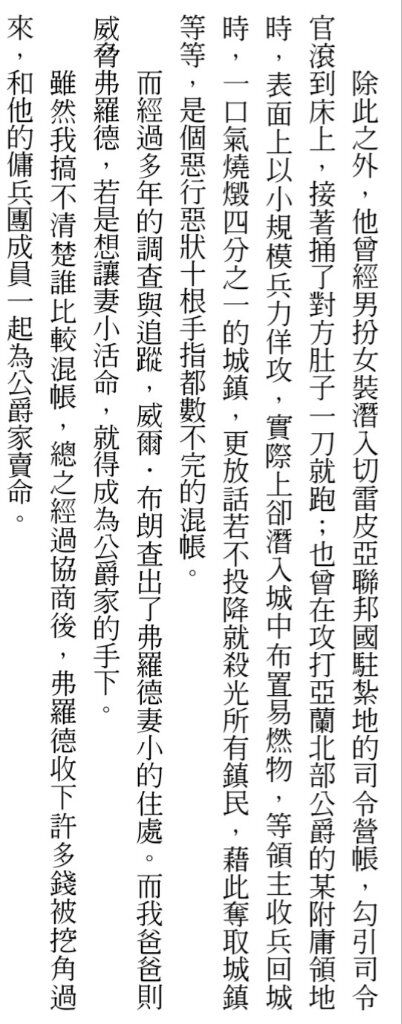 除此之外，他曾經男扮女裝潛入切雷皮亞聯邦國駐紮地的司令營帳，勾引司令
官滾到床上，接著捅了對方肚子一刀就跑；也曾在攻打亞蘭北部公爵的某附庸領地
時，表面上以小規模兵力佯攻，實際上卻潛入城中布置易燃物，等領主收兵回城
時，一口氣燒燬四分之一的城鎮，更放話若不投降就殺光所有鎮民，藉此奪取城鎮
等等，是個惡行惡狀十根手指都數不完的混帳。
而經過多年的調查與追蹤，威爾·布朗查出了弗羅德妻小的住處。而我爸爸則
威脅弗羅德，若是想讓妻小活命，就得成為公爵家的手下。
雖然我搞不清楚誰比較混帳，總之經過協商後，弗羅德收下許多錢被挖角過
來，和他的傭兵團成員一起為公爵家賣命。